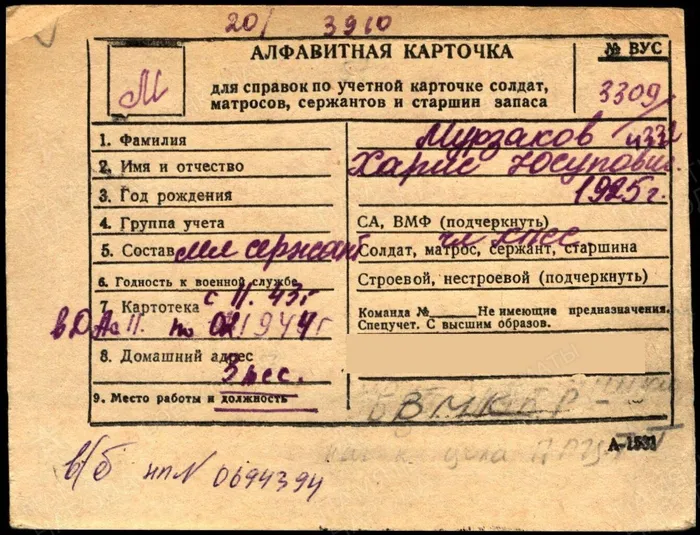 20/ 3910
АЛФАВИТНАЯ КАРТОЧКА
№ ВУС
М
для справок по учетной карточке солдат,
матросов, сержантов и старшин запаса
3309/
1. Фамилия
Мурзаков
2. Имя и отчество
Харис Юсупович
3. Год рождения
1925 г.
4. Группа учета
СА, ВМФ (подчеркнуть)
5. Состав мл сержант
чл КПСС
Солдат, матрос, сержант, старшина
6. Годность к военной службе
Строевой, нестроевой (подчеркнуть)
7. Картотека с 11. 43 г
Команда №____ Не имеющие предназначения.
Спецучет. С высшим образов.
в ДА с 11. по 02 1944 г
8. Домашний адрес
3 мес.
9. Место работы и должность
ВМККР -
А-1531
в/б нп№ 0694394